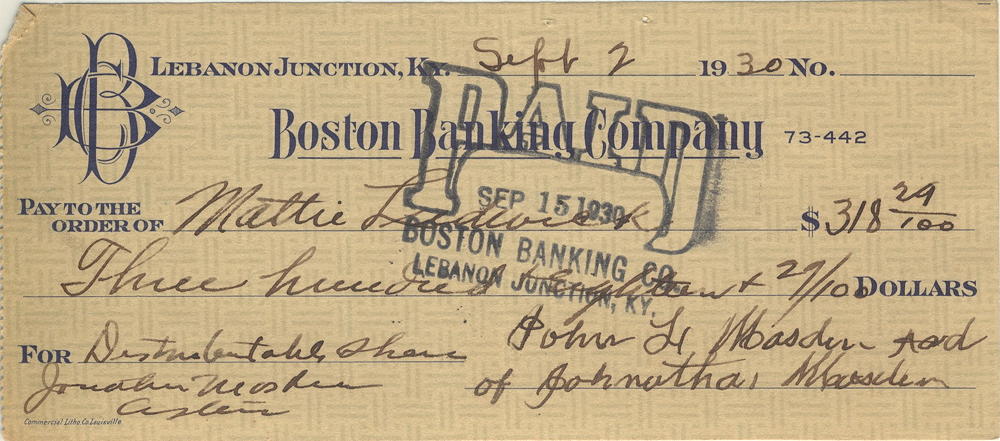 LEBANON JUNCTION, KY. Sept 2 1930 NO.
Boston Banking Company 73-442
PAID
SEP 15 1930
BOSTON BANKING CO.
LEBANON JUNCTION, KY.
PAY TO THE
ORDER OF Mattie $318 29/100
Three hundred Eighteen + 29/100 DOLLARS
FOR Distributable Share
John L Masden
of Masden
Commercial Litho. Co. Louisville